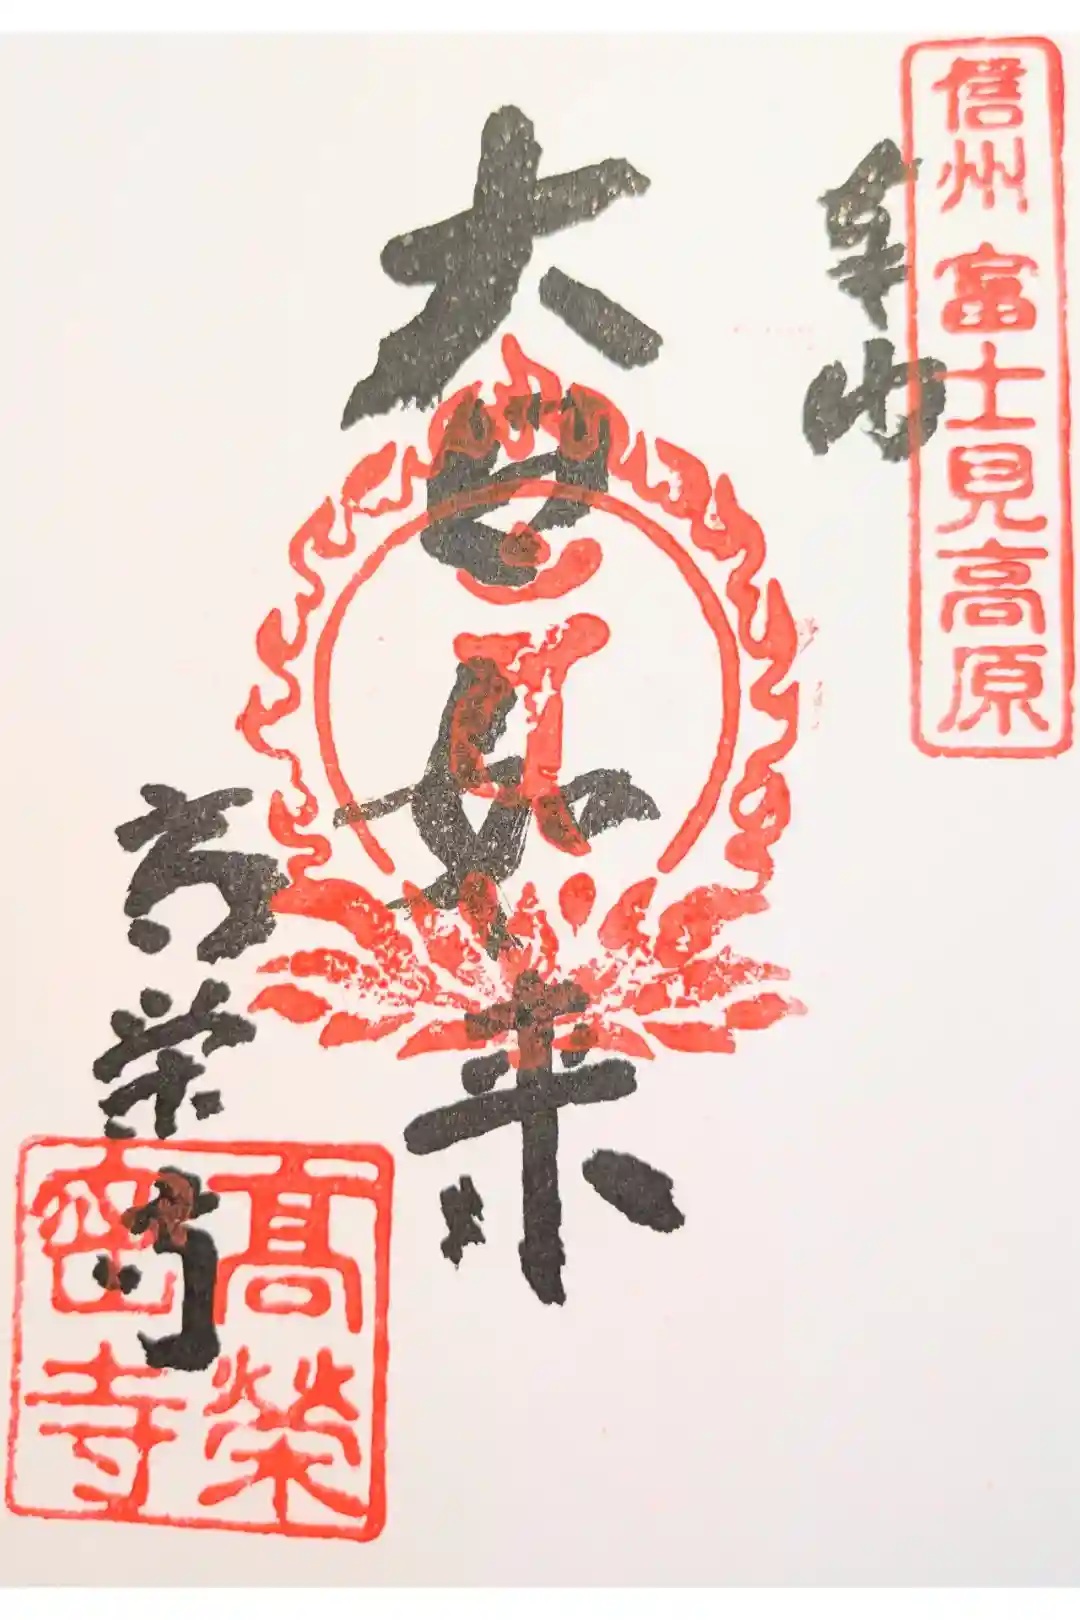 信州 富士見高原
奉拝
大日如来
高栄寺
高榮
密寺